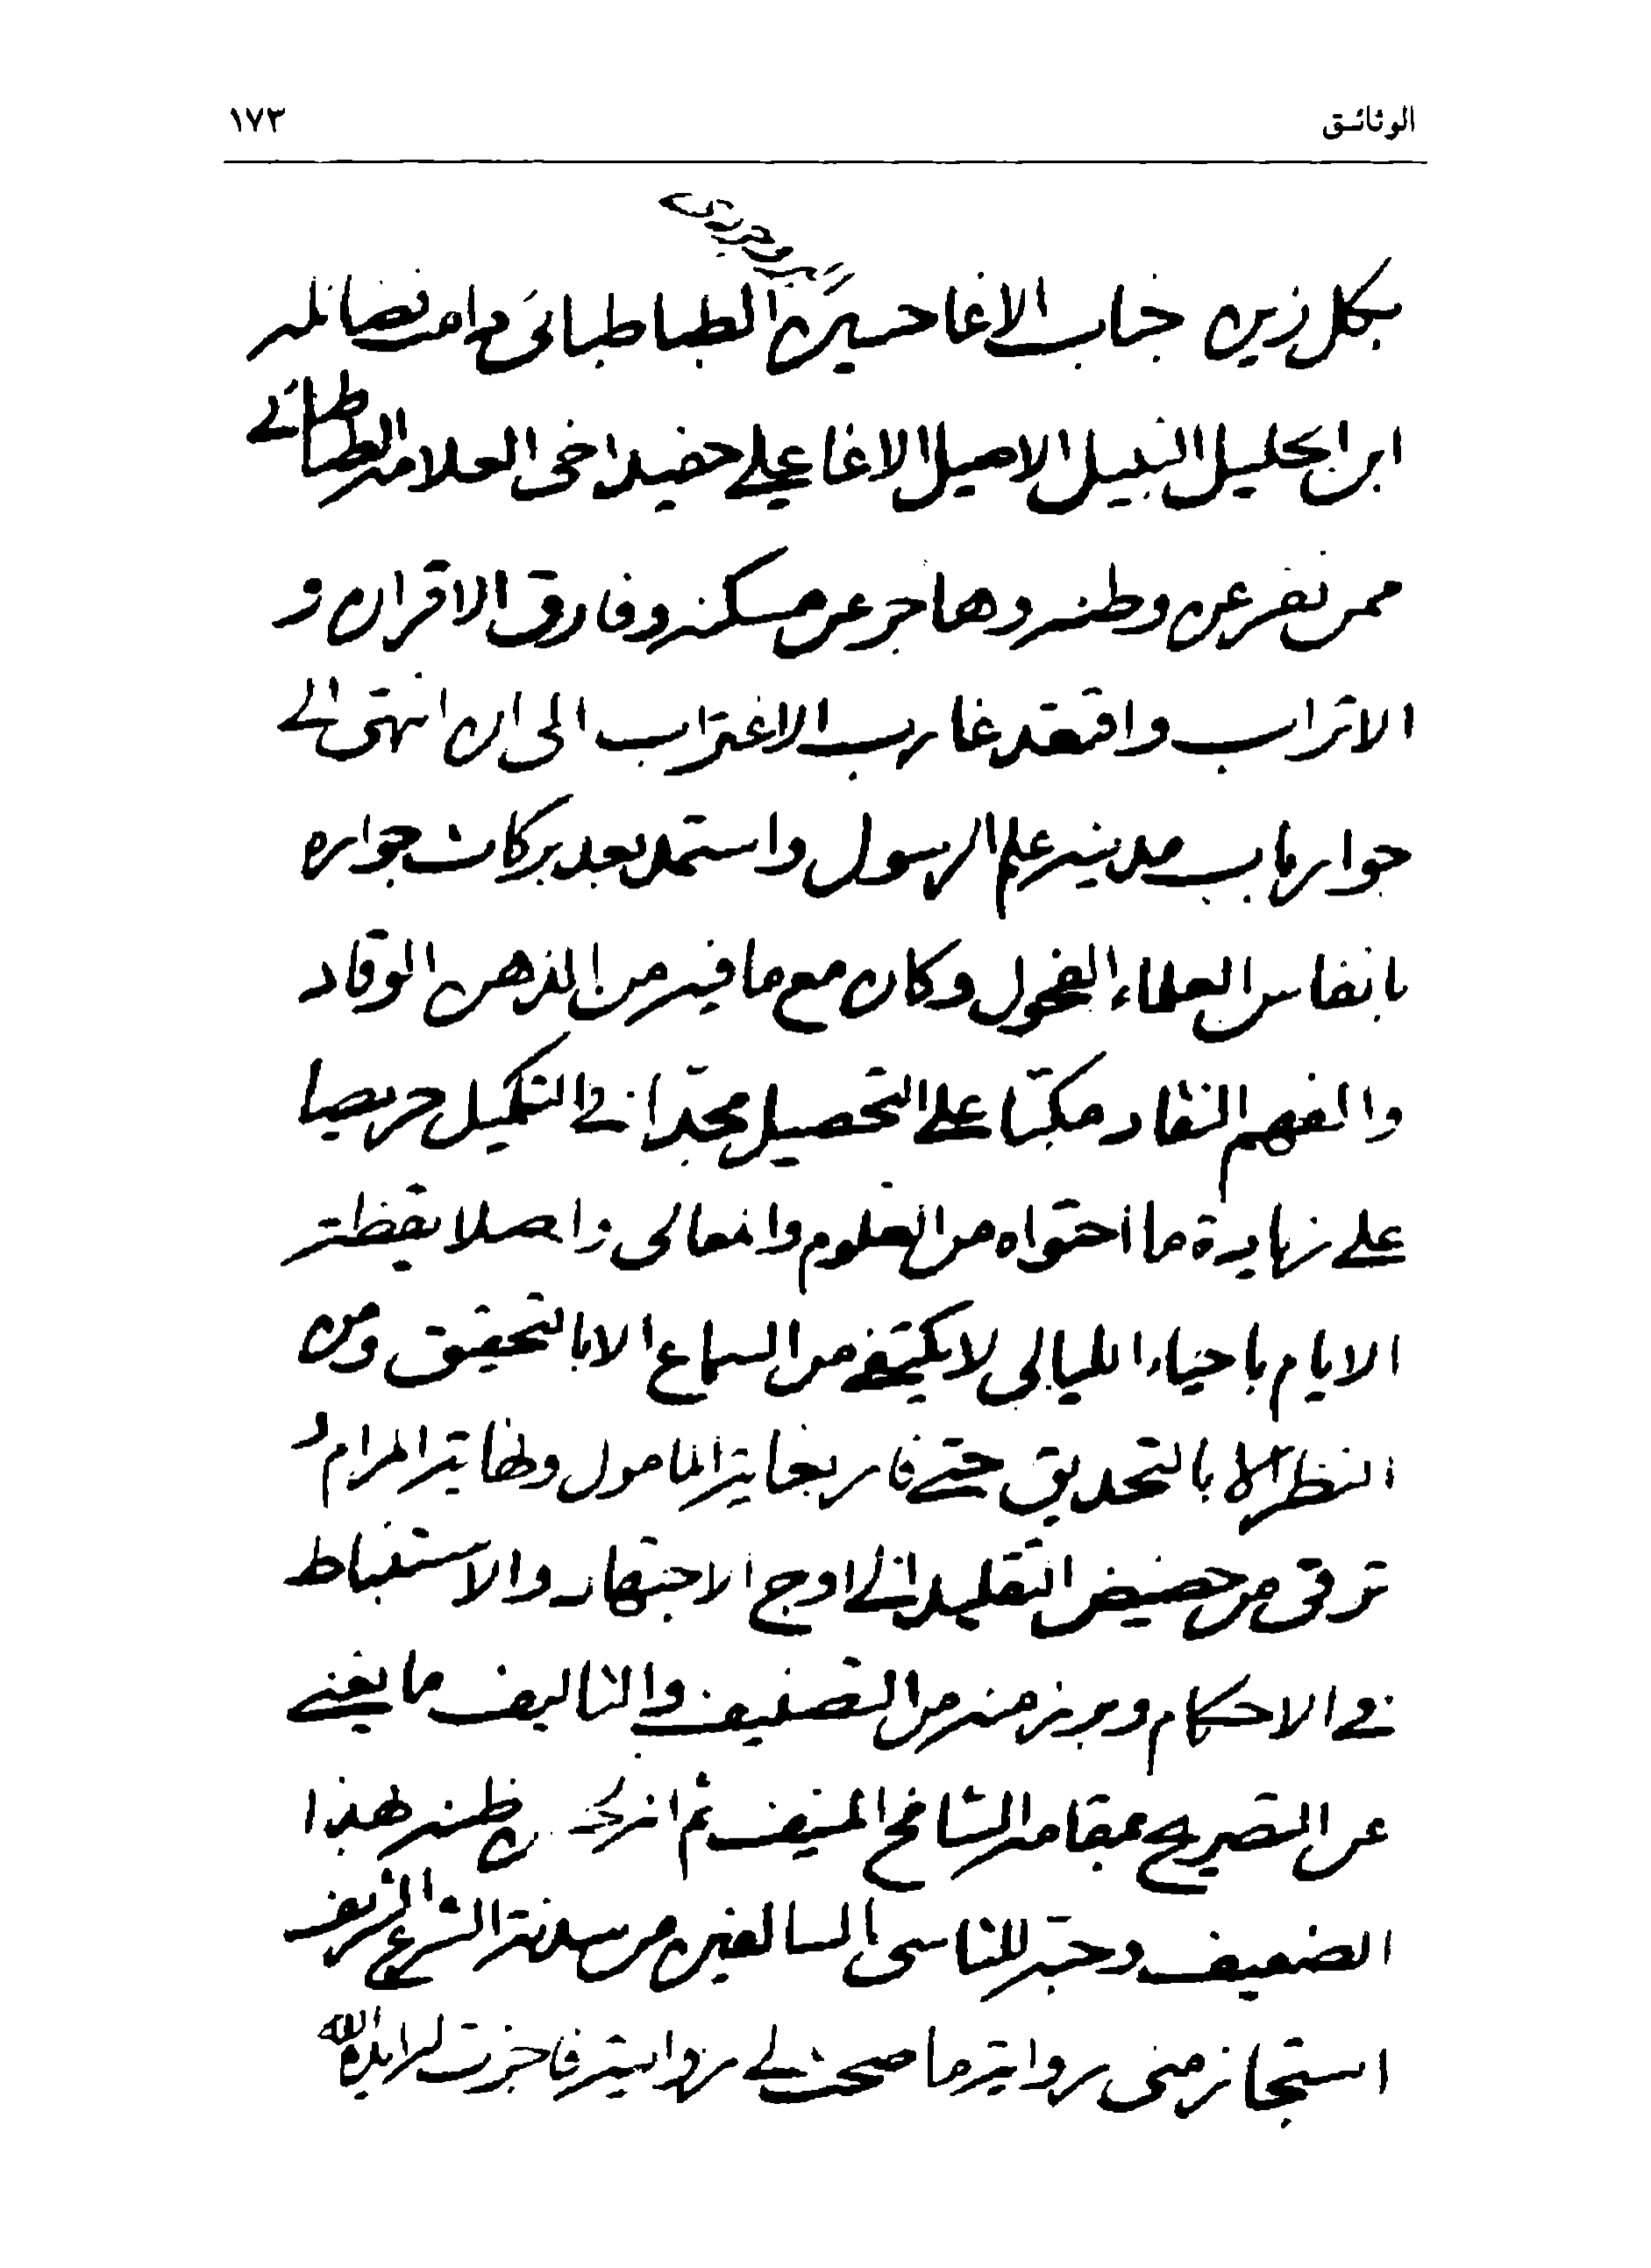 الوثائـق ١٧٣
البروجردي
بكل زين جناب الاغا حسين الطباطبائي دامت فضائله
ابن الجليل النبيل الاصيل الاغا علي حفيد اخي العلامه الطباطبائي
ممن نفر عن وطنه وهاجر عن مسكنه وفارق الاقران و
الاتراب واقتعد غارب الاغتراب الى ان انتهى الى
جوار باب مدينه علم الرسول واستمد بعد بركات جواره
بانفاس العلماء الفحول وكان مع ما فيه من الذهن الوقاد
والفهم النقاد مكبّا على التحصيل مجدّا في التكميل حريصا
على زيادة ما احتواه من العلوم والمعالى واصلا يقظته
الايام باحياء الليالي لا يكتفى من السماع الا بالتحقيق ومن
النظر الا بالتحديق حتى فاز بغاية المامول ونهاية المرام و
ترقى من حضيض التقليد الى اوج الاجتهاد والاستنباط
في الاحكام وبرز منه من التصنيف والتاليف ما يغني
عن التصريح بمقامه الشامخ المنيف ثم انه ظنه بهذا
الضعيف وحبّه للتاسى بالسالفين من سدنة الشرع الشريف
استجاز منى رواية ما صحت لي روايته فاجزت له ايده الله